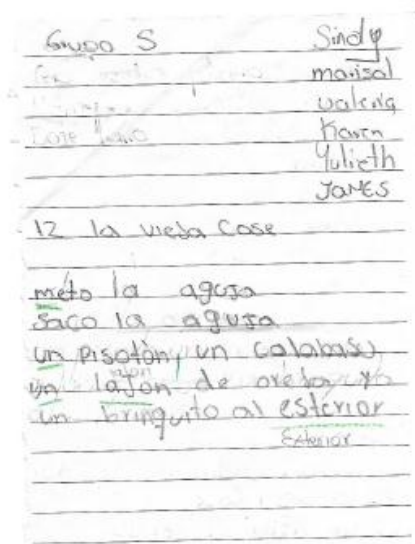 Grupo S
Sindy
marisol
valeria
Karen
Yulieth
JAMES
12 la viesa Cose
meto la agusa
Saco la agusa
un pisotòn, un calabasu
jalon
un lajon de oresa y
un bringuito al esterior
Exterior